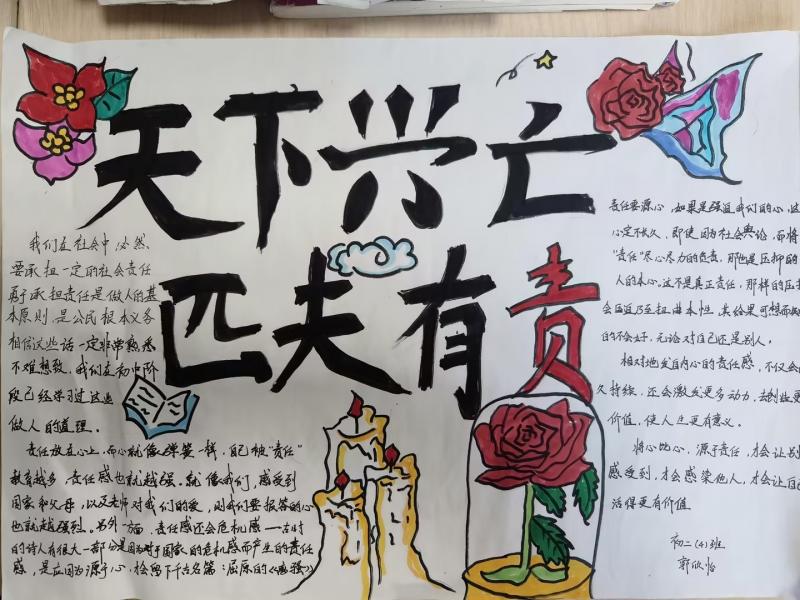 天下兴亡
匹夫有责
我们在社会中,必然
要承担一定的社会责任
勇于承担责任是做人的基
本原则,是公民根本义务
相信这些话一定非常熟悉
不难想致,我们在初中阶
段已经学习过这些
做人的道理。
责任放在心上,而心就像弹簧一样,自己被“责任”
教育越多,责任感也就越强。就像我们,感受到
国家和父母,以及老师对我们的爱,则我们要报答的心
也就越强烈。另外一方面,责任感还会危机感——古时
的诗人有很大一部分是因为对于国家的危机感而产生的责任
感,是应因为源于心,才会留下千古名篇:屈原的《离骚》
责任要源心,如果是强迫我们的心,这
心定不长久,即使因为社会舆论,而将
“责任”尽心尽力的负责,那也是压抑的
人的本心。这不是真正责任,那样的压抑
会压迫乃至扭曲本性,其结果可想而知
的不会好,无论对自己还是别人。
相对地发自内心的责任感,不仅会
久持续,还会激发更多动力,去创造更
价值,使人生更有意义。
将心比心,源于责任,才会让别
感受到,才会感染他人,才会让自己
活得更有价值
初二(4)班
郭欣怡